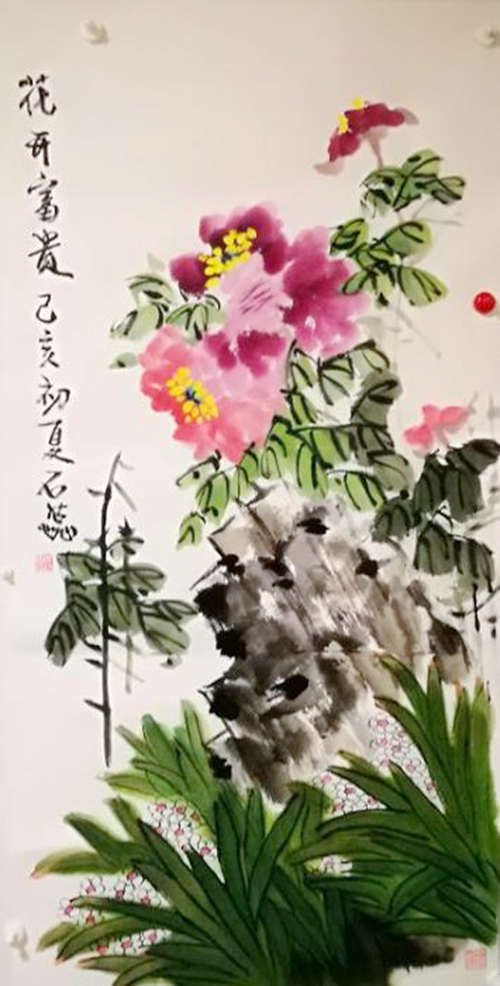 花开富贵己亥初夏石蕊